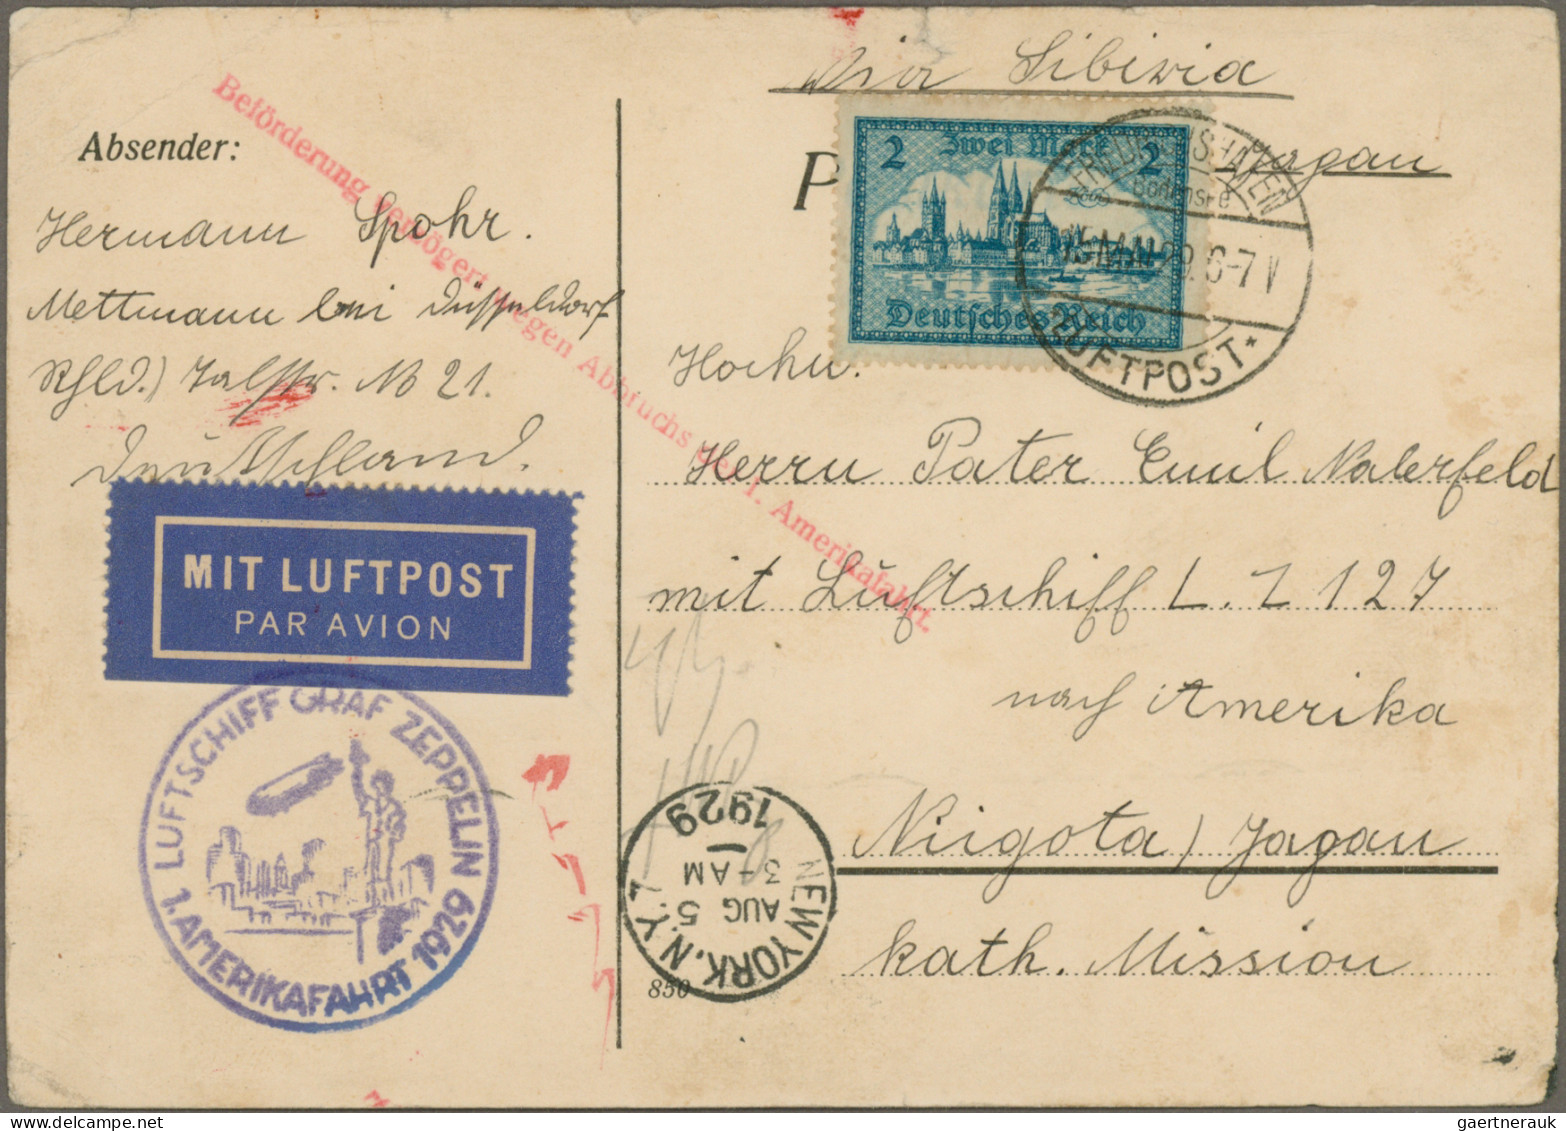 Via Sibiria
Japan
Absender:
Hermann Spohr.
Mettmann bei Düsseldorf
Rhld.) Talstr. No 21.
Deutschland.
Beförderung verzögert wegen Abbruchs der 1. Amerikafahrt.
2 Zwei Mark 2
Deutsches Reich
FRIEDRICHSHAFEN
Bodensee
29. 6-7 V
LUFTPOST
P
Hochw.
Herrn Pater Emil Naberfeld
mit Luftschiff L. Z 127
nach Amerika
Niigata) Japan
kath. Mission
MIT LUFTPOST
PAR AVION
LUFTSCHIFF GRAF ZEPPELIN
1. AMERIKAFAHRT 1929
NEW YORK, N.Y.
AUG 5
3-AM
1929
850
gaertnerauk — Delcampe.net